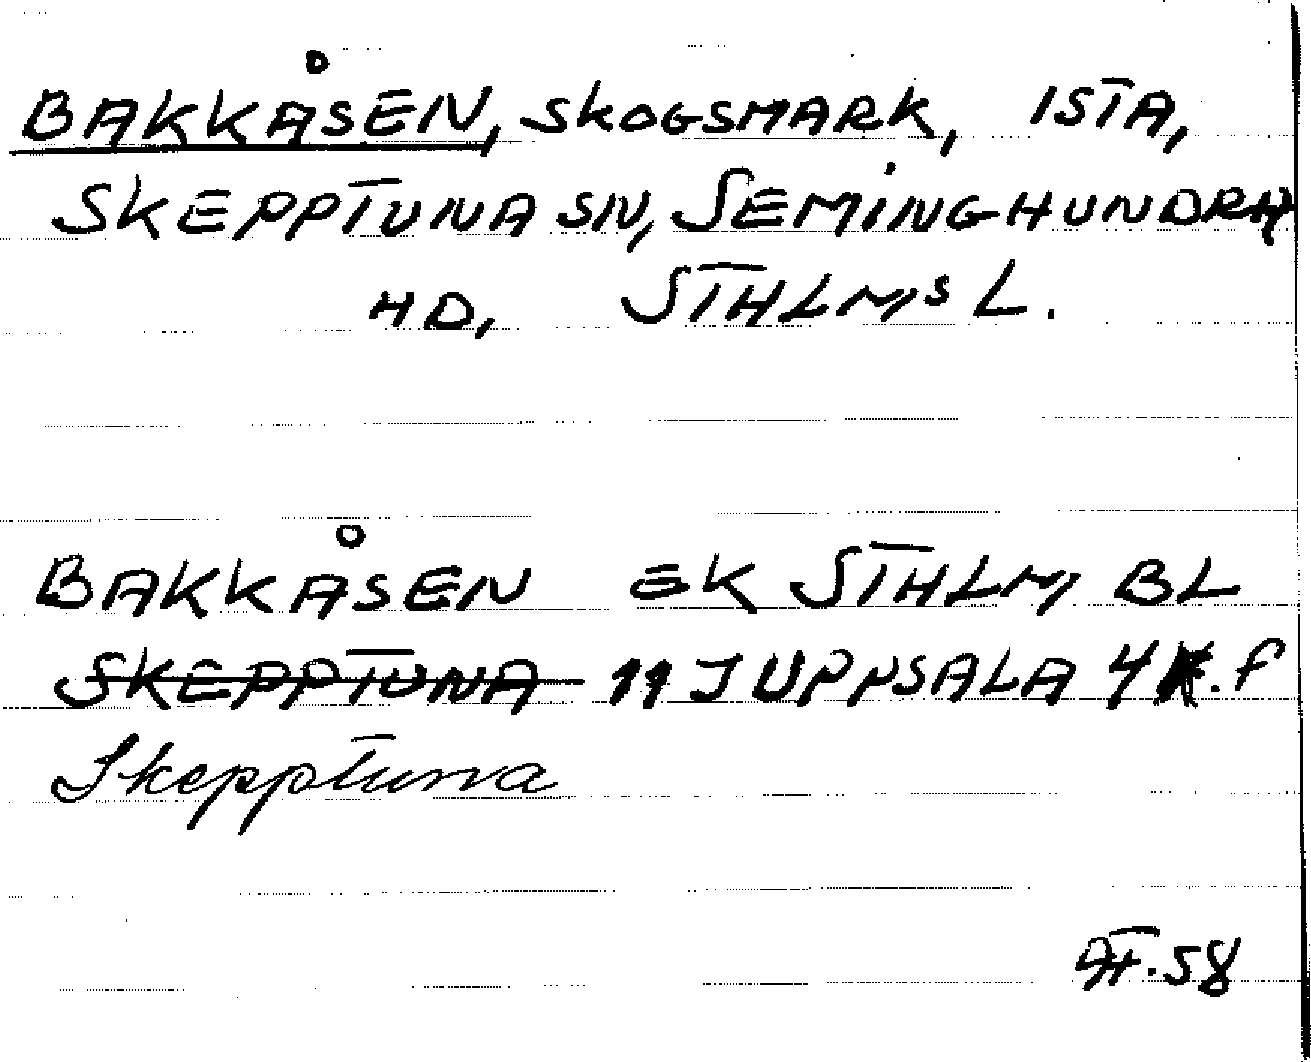 BAKKÅSEN, SKOGSMARK, ISTA,
SKEPPTUNA SN, SEMINGHUNDRA
HD, STHLMS L.
BAKKÅSEN EK STHLM BL
SKEPPTUNA 11 J UPPSALA 4 K.f
Skepptuna
58